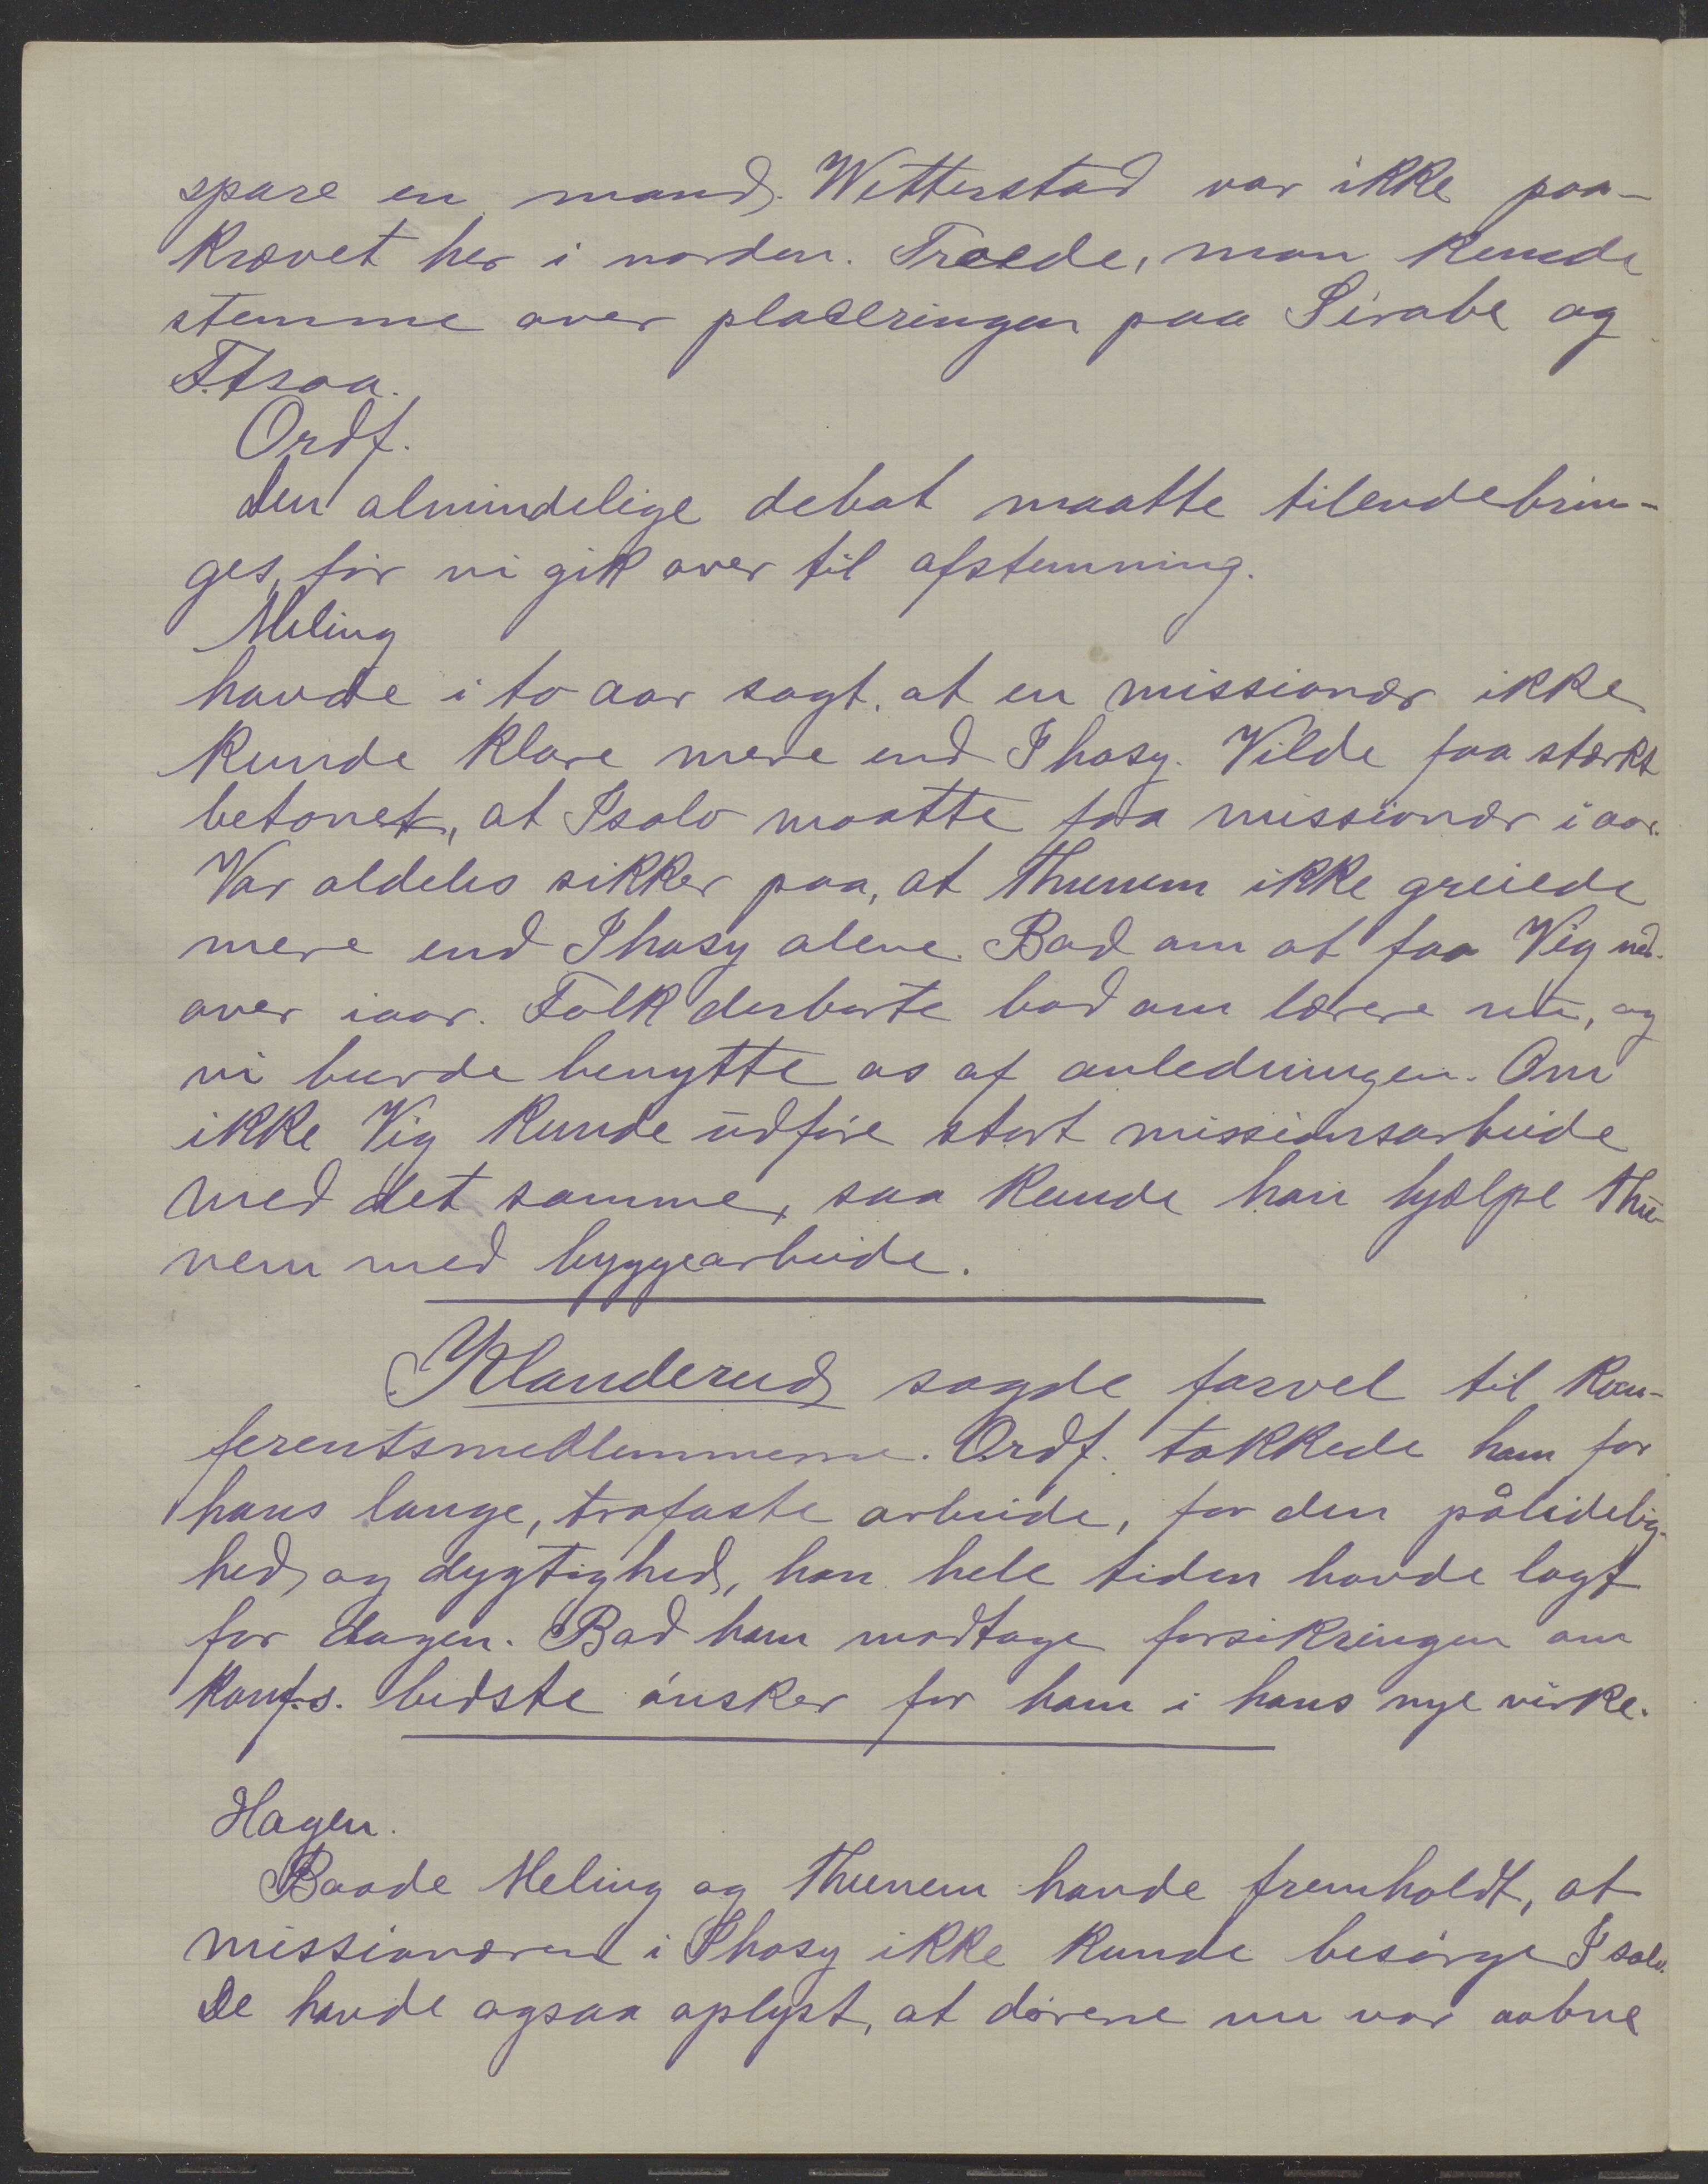 spare en mand. Wetterstad var ikke paa-
krævet her i norden. Troede, man kunde
stemme over placeringen paa Sirabe og
F.tsoa.
Ordf.
Den almindelige debat maatte tilendebrin-
ges, før vi gik over til afstemning.
Meling
havde i to aar sagt, at en missionær ikke
kunde klare mere end Ihosy. Vilde faa stærkt
betonet, at Isalo maatte faa missionær iaar.
Var aldeles sikker paa, at Thunem ikke greiede
mere end Ihosy alene. Bad om at faa Vig ned-
over iaar. Folk derborte bad om lærere nu, og
vi burde benytte os af anledningen. Om
ikke Vig kunde udføre stort missionsarbeide
med det samme, saa kunde han hjælpe Thu-
nem med byggearbeide.
Klanderud sagde farvel til kon-
ferentsmedlemmerne. Ordf. takkede ham for
hans lange, trofaste arbeide, for den pålidelig-
hed og dygtighed, han hele tiden havde lagt
for dagen. Bad ham modtage forsikringen om
konf.s. bedste ønsker for ham i hans nye virke.
Hagen.
Baade Meling og Thunem havde fremholdt, at
missionæren i Ihosy ikke kunde besørge Isalo.
De havde ogsaa oplyst, at dørene nu var aabne